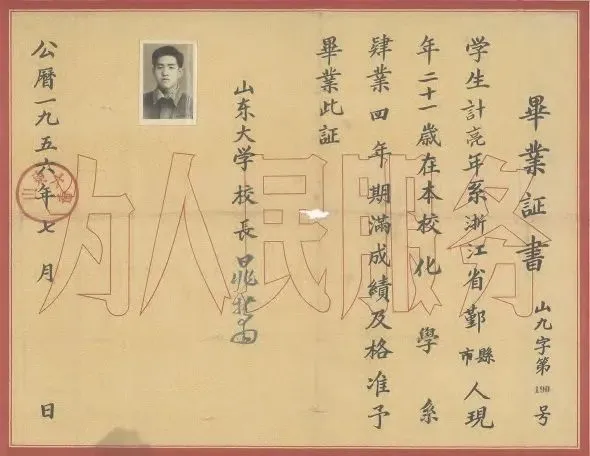 畢業証書
山九字第190号
学生計亮年系浙江省鄞縣市人現
年二十一歲在本校化學系
肄業四年期滿成績及格准予
畢業此証
山东大学校長晁哲甫
公曆一九五六年七月 日
为人民服务